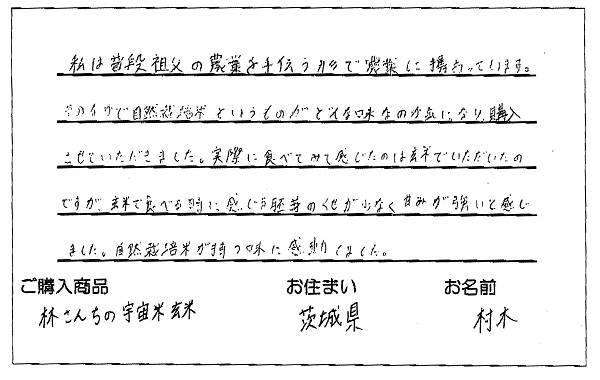 私は普段祖父の農業を手伝う形で農業に携わっています。
その中で自然栽培米というものがどんな味なのか気になり、購入
させていただきました。実際に食べてみて感じたのは玄米でいただいたの
ですが、玄米で食べる時に感じる胚芽のくせが少なく甘みが強いと感じ
ました。自然栽培米が持つ味に感動しました。
ご購入商品 お住まい お名前
林さんちの宇宙米玄米 茨城県 村木